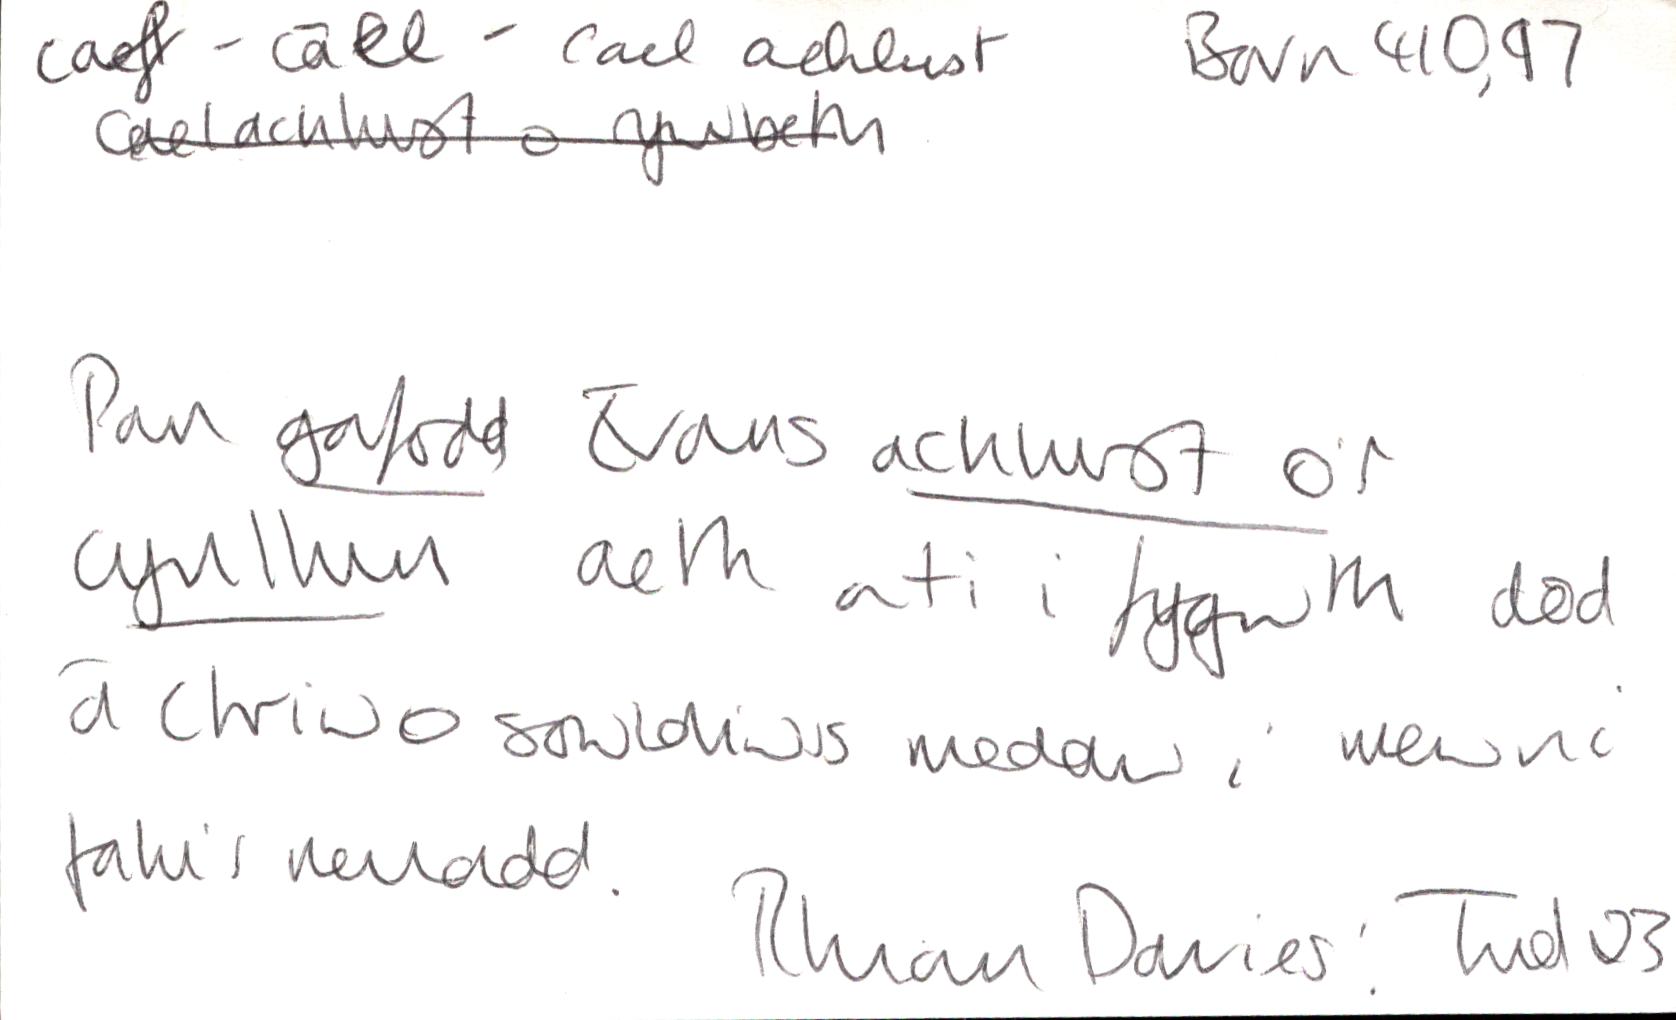 caeff - cāel - cael achlust Barn 410, 97
cael achlust o rywbeth
Pan gafodd Evans achlust o'r
cynllun aeth ati i fygwth dod
â chriw o sowldiwrs meddw i mewn i
dalu'r neuadd.
Rhian Davies: Tud 03